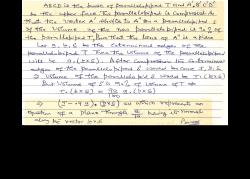 ABCD is the base of parallelopiped T and A'B'C'D'
be the upper face. The parallelopiped is compressed so
that the vertex A' shifts to A'' on a parallelopiped S
If the volume of the new parallelopiped is % of
the parallelopiped T, prove that the locus of A'' is a plane
Let a, b, c be the coterminous edges of the
parallelopiped T then the volume of the parallelopiped
will be a.(b×c). After compression the coterminous
edges of the parallelopiped S would become r, b, c
∴ Volume of the parallelopiped S would be r.(b×c)
But Volume of S is 90% of volume of T
r.(b×c) = 90/100 a.(b×c)
⇒ (r - .9 a).(b×c) = 0 which represents an
equation of a plane through having its normal
along the vector b×c. Proved